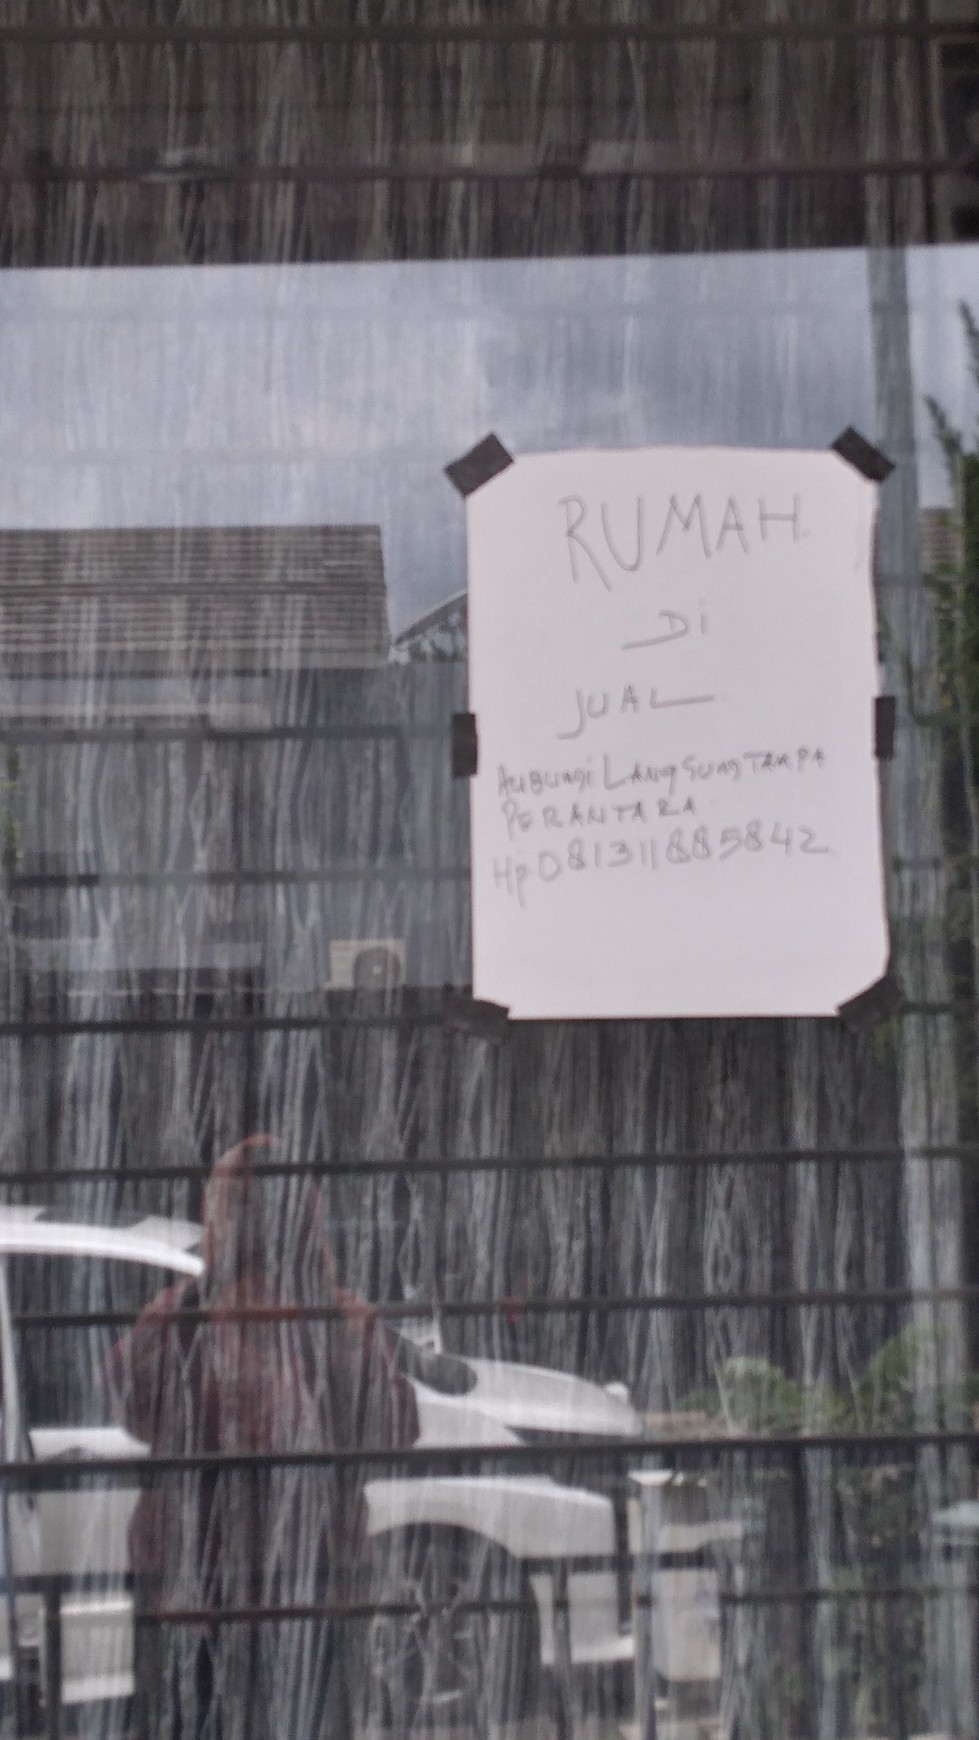 RUMAH
Di
JUAL
HUBUNGi LANGSUNG TANPA
PERANTARA
Hp 081311885842